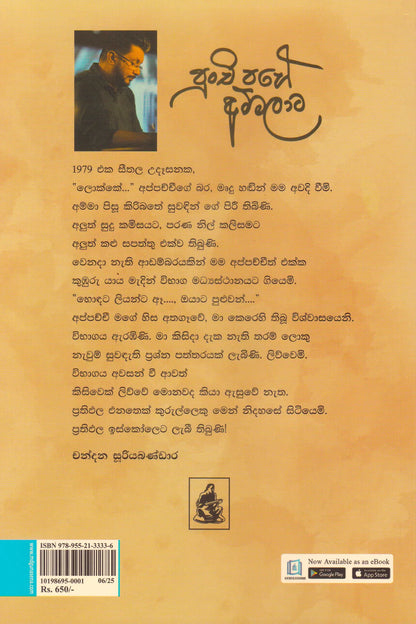 පුංචි පහේ
අම්මලාට
1979 එක සීතල උදෑසනක,
"ලොක්කේ..." අප්පච්චීගේ බර, මෘදු හඬින් මම අවදි වීමි.
අම්මා පිසූ කිරිබතේ සුවඳින් ගේ පිරී තිබිණි.
අලුත් සුදු කමිසයට, පරණ නිල් කලිසමට
අලුත් කළු සපත්තු එක්ව තිබුණි.
වෙනදා නැති ආඩම්බරයකින් මම අප්පච්චිත් එක්ක
කුඹුරු යාය මැදින් විභාග මධ්‍යස්ථානයට ගියෙමි.
"හොඳට ලියන්ට ඈ...., ඔයාට පුළුවන්...."
අප්පච්චී මගේ හිස අතගෑවේ, මා කෙරෙහි තිබූ විශ්වාසයෙනි.
විභාගය ඇරඹිණි. මා කිසිදා දැක නැති තරම් ලොකු
නැවුම් සුවඳැති ප්‍රශ්න පත්තරයක් ලැබිණි. ලිව්වෙමි.
විභාගය අවසන් වී ආවත්
කිසිවෙක් ලිව්වේ මොනවද කියා ඇසුවේ නැත.
ප්‍රතිඵල එනතෙක් කුරුල්ලෙකු මෙන් නිදහසේ සිටියෙමි.
ප්‍රතිඵල ඉස්කෝලෙට ලැබී තිබුණි!
චන්දන සූරියබණ්ඩාර
ISBN 978-955-21-3333-6
10198695-0001 06/25
Rs. 650/-
Now Available as an eBook
Google Play
App Store